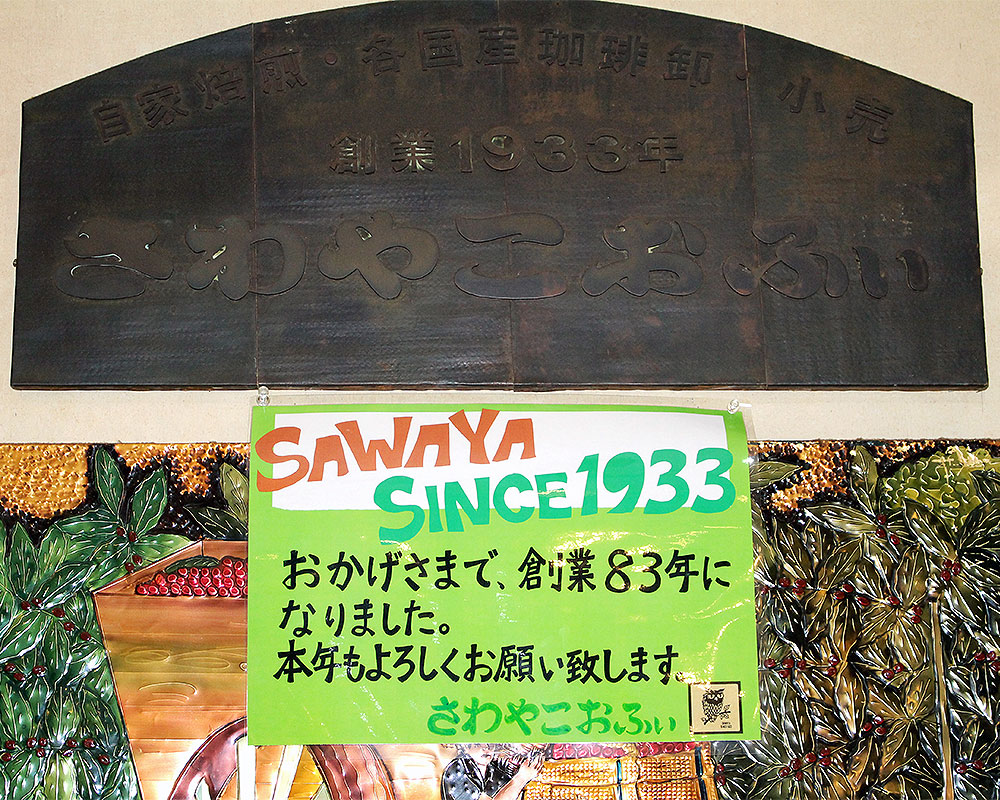 自家焙煎・各国産珈琲卸・小売
創業1933年
さわやこおふぃ
SAWAYA
SINCE1933
おかげさまで、創業83年に
なりました。
本年もよろしくお願い致します。
さわやこおふぃ